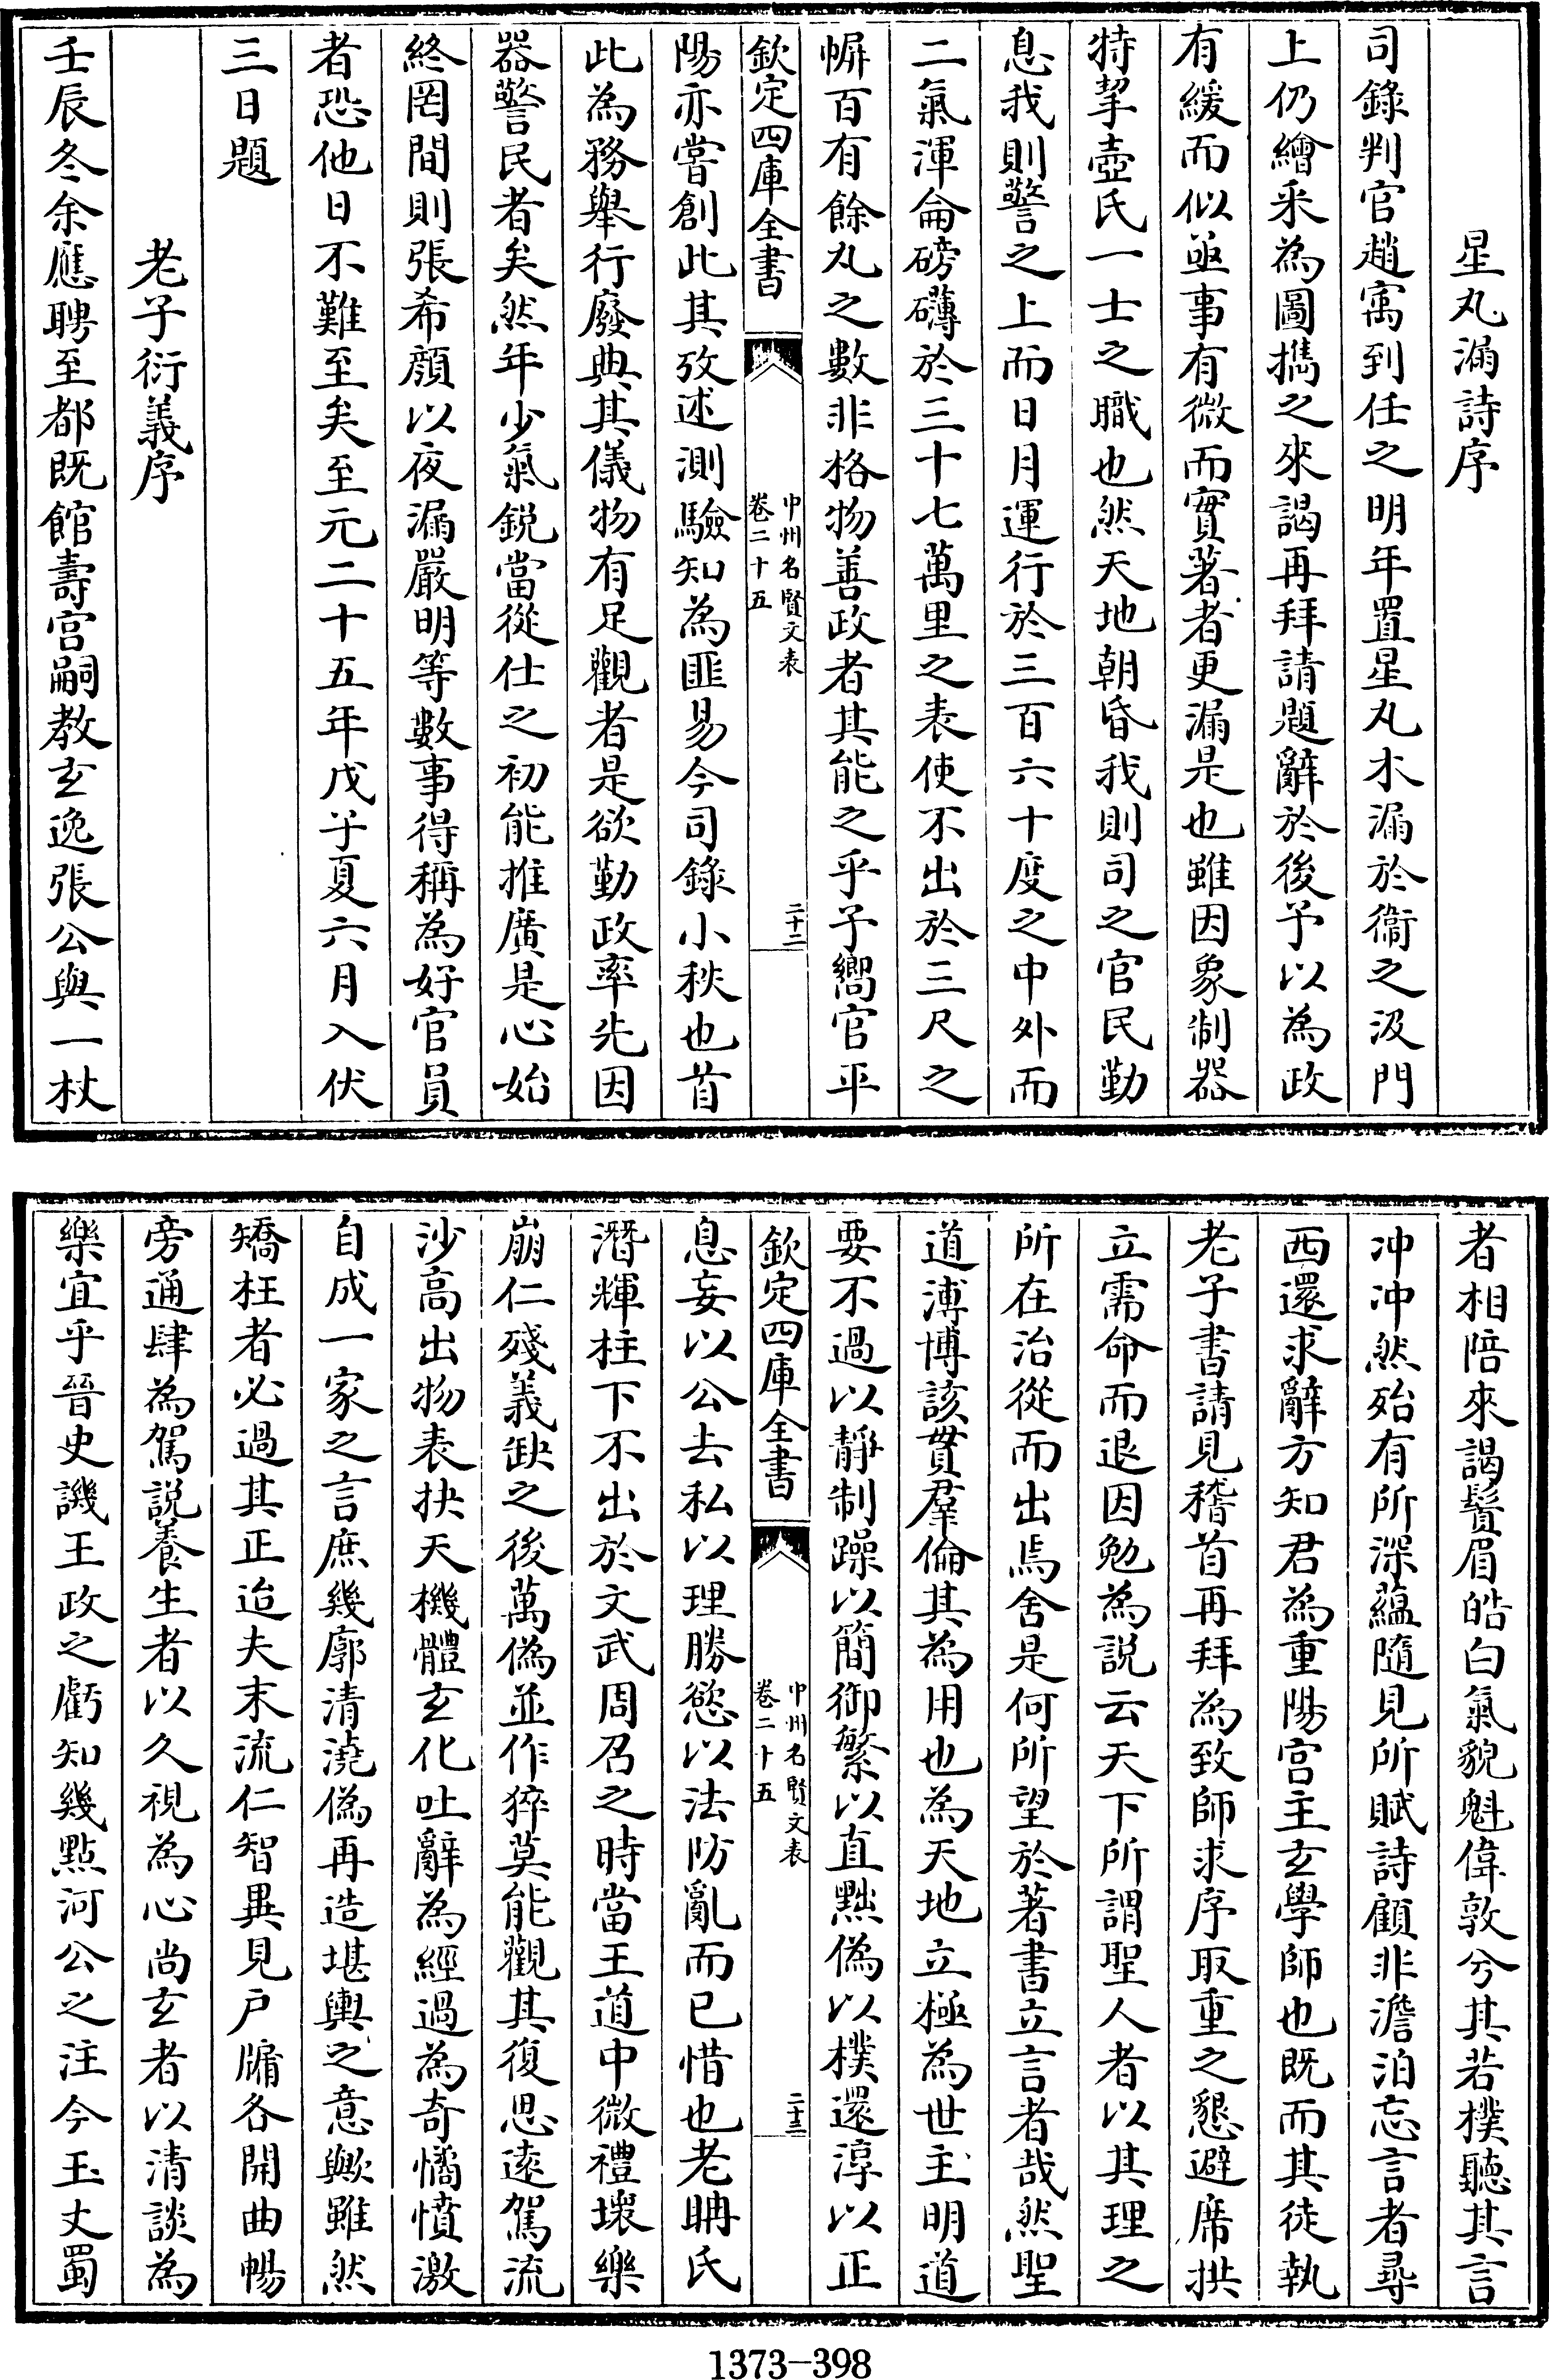 星丸漏詩序
司錄判官趙寓到任之明年置星丸木漏於衙之汲門
上仍繪采為圖擕之來謁再拜請題辭於後予以為政
有緩而似亟事有微而實著者更漏是也雖因象制器
特挈壺氏一士之職也然天地朝昏我則司之官民勤
息我則警之上而日月運行於三百六十度之中外而
二氣渾侖磅礴於三十七萬里之表使不出於三尺之
幈百有餘丸之數非格物善政者其能之乎予嚮官平
欽定四庫全書
中州名賢文表
卷二十五
二十二
陽亦嘗創此其攷述測驗知為匪易今司錄小秩也首
此為務舉行廢典其儀物有足觀者是欲勤政率先因
器警民者矣然年少氣鋭當從仕之初能推廣是心始
終罔間則張希顔以夜漏嚴明等數事得稱為好官員
者恐他日不難至矣至元二十五年戊子夏六月入伏
三日題
老子衍義序
壬辰冬余應聘至都既館壽宫嗣教玄逸張公與一杖
者相陪來謁鬢眉皓白氣貌魁偉敦兮其若樸聽其言
冲冲然殆有所深藴隨見所賦詩顧非澹泊忘言者尋
西還求辭方知君為重陽宫主玄學師也既而其徒執
老子書請見稽首再拜為致師求序取重之懇避席拱
立需命而退因勉為説云天下所謂聖人者以其理之
所在治從而出焉舍是何所望於著書立言者哉然聖
道溥博該貫羣倫其為用也為天地立極為世主明道
要不過以靜制躁以簡御繁以直黜偽以樸還淳以正
欽定四庫全書
中州名賢文表
卷二十五
二十三
息妄以公去私以理勝慾以法防亂而已惜也老聃氏
潛輝柱下不出於文武周召之時當王道中微禮壞樂
崩仁殘義缺之後萬偽並作猝莫能觀其復思遠駕流
沙高出物表抉天機體玄化吐辭為經過為奇憰憤激
自成一家之言庶幾廓清澆偽再造堪輿之意歟雖然
矯枉者必過其正迨夫末流仁智異見戸牖各開曲暢
旁通肆為駕説養生者以久視為心尚玄者以清談為
樂宜乎晉史譏王政之虧知幾點河公之注今玉丈蜀
1373-398